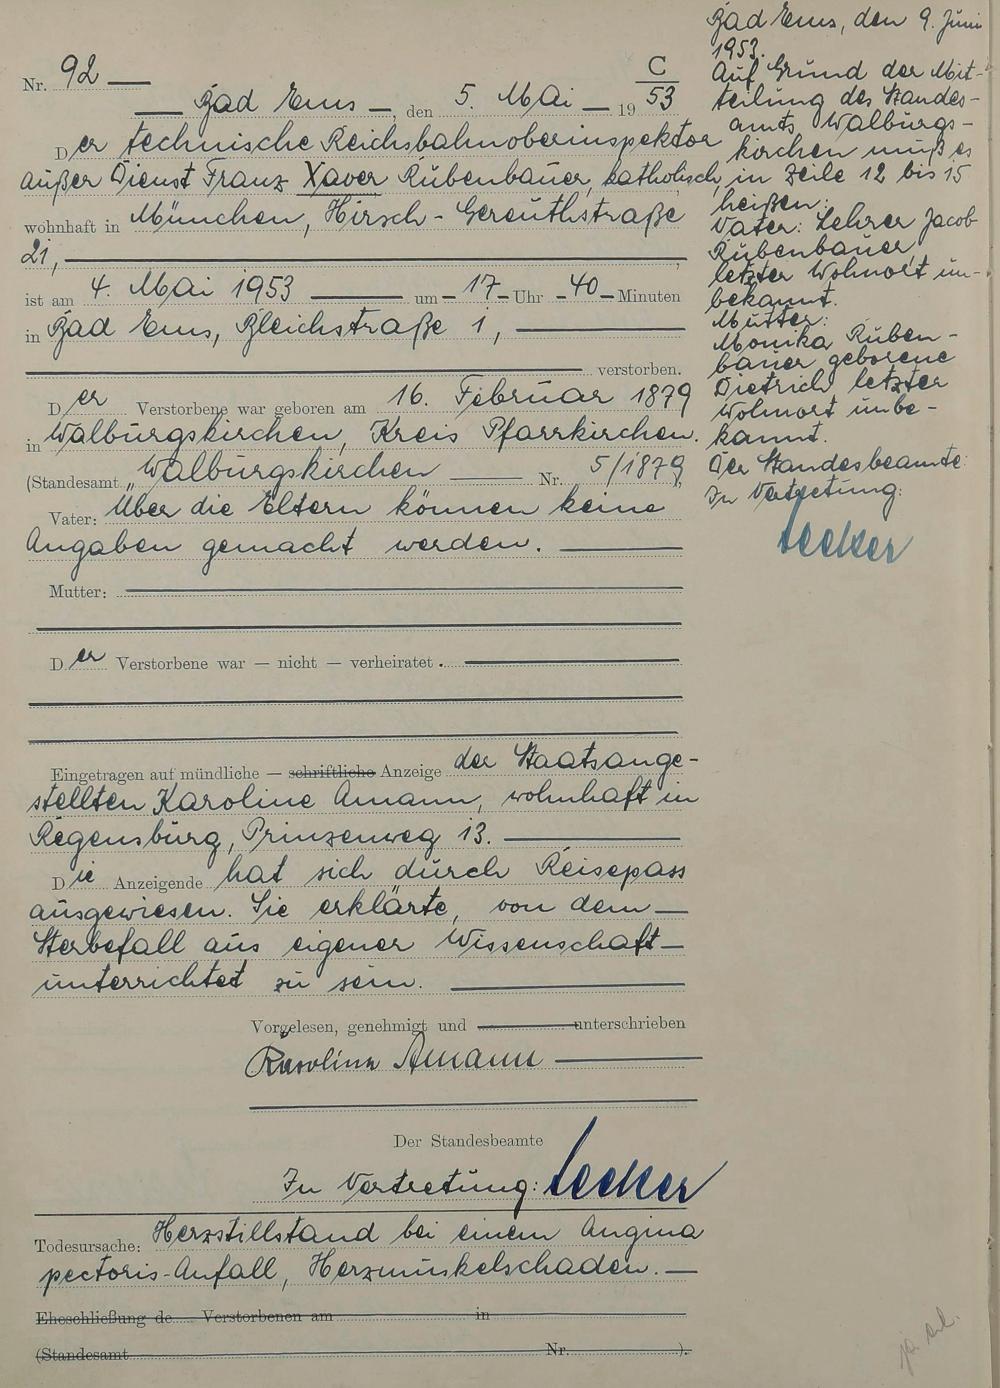 Nr. 92 —
C
53
Bad Ems —, den 5. Mai — 19
Der technische Reichsbahnoberinspektor
außer Dienst Franz Xaver Rubenbauer, katholisch,
wohnhaft in München, Hirsch-Gereuthstraße
21,
ist am 4. Mai 1953 — um — 17 — Uhr — 40 — Minuten
in Bad Ems, Bleichstraße 1,
verstorben.
Der Verstorbene war geboren am 16. Februar 1879
in Walburgskirchen, Kreis Pfarrkirchen.
(Standesamt Walburgskirchen — Nr. 5/1879
Vater: Über die Eltern können keine
Angaben gemacht werden. —
Mutter: —
Der Verstorbene war — nicht — verheiratet. —
Eingetragen auf mündliche — schriftliche Anzeige der Staatsange-
stellten Karoline Amann, wohnhaft in
Regensburg, Prinzenweg 13. —
Die Anzeigende hat sich durch Reisepass
ausgewiesen. Sie erklärte, von dem —
Sterbefall aus eigener Wissenschaft —
unterrichtet zu sein. —
Vorgelesen, genehmigt und — unterschrieben
Karolina Amann —
Der Standesbeamte
In Vertretung: Becker
Todesursache: Herzstillstand bei einem Angina
pectoris-Anfall, Herzmuskelschaden. —
Eheschließung de Verstorbenen am in
(Standesamt Nr. ).
Bad Ems, den 9. Juni
1953.
Auf Grund der Mit-
teilung des Standes-
amts Walburgs-
kirchen muß es
in Zeile 12 bis 15
heißen:
Vater: Lehrer Jacob
Rubenbauer,
letzter Wohnort un-
bekannt.
Mutter:
Monika Ruben-
bauer geborene
Dietrich letzter
Wohnort unbe-
kannt.
Der Standesbeamte:
In Vertretung:
Becker